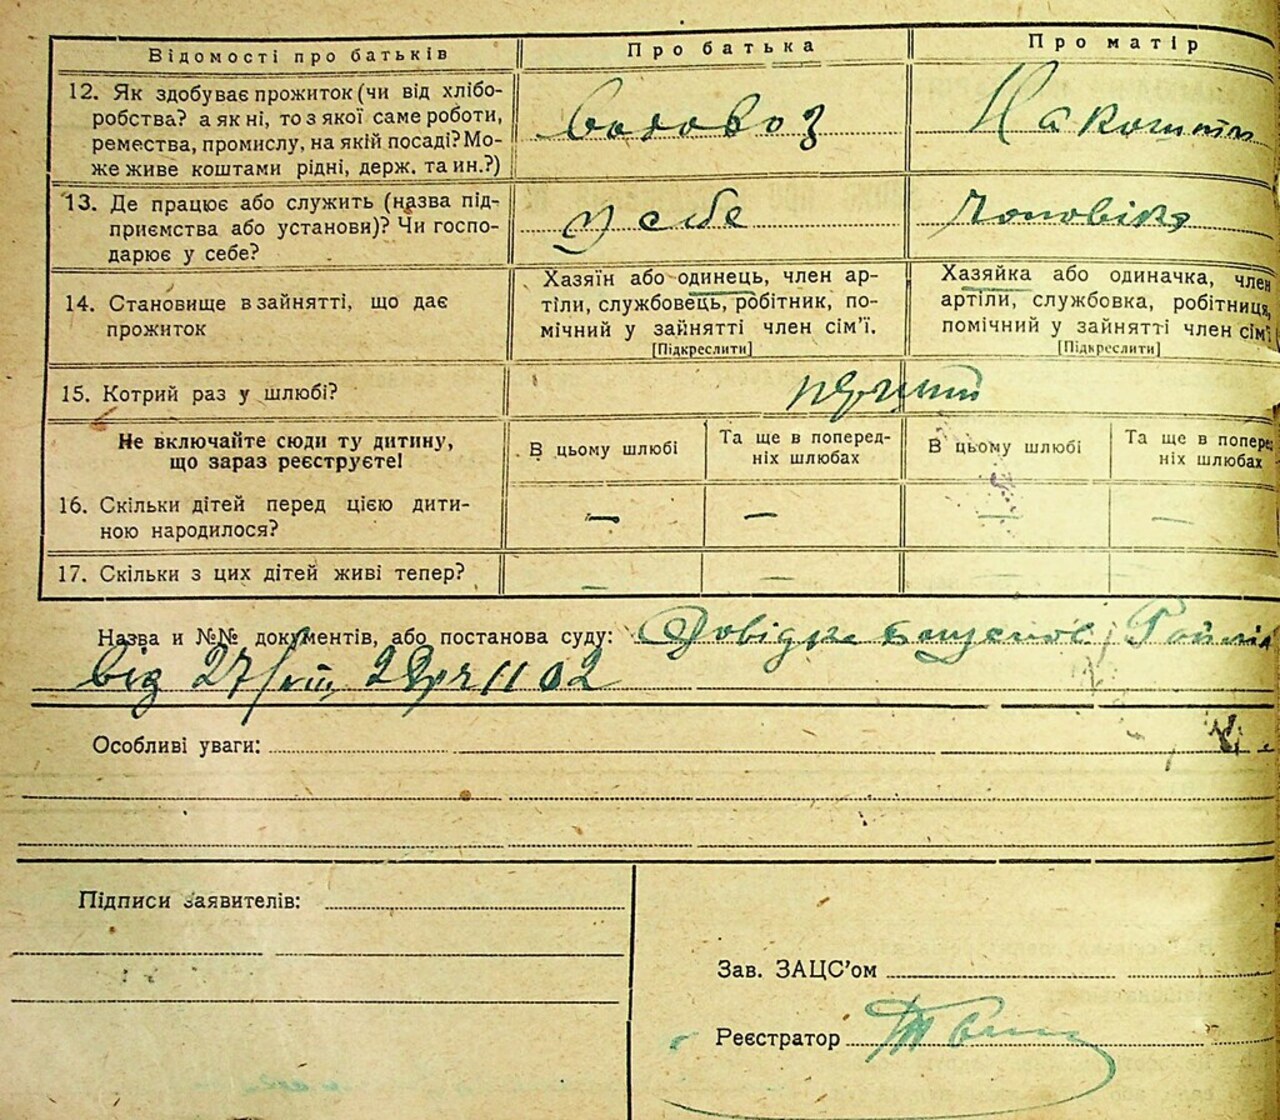 Відомості про батьків
Про батька
Про матір
12. Як здобуває прожиток (чи від хлібо-
робства? а як ні, то з якої саме роботи,
ремества, промислу, на якій посаді? Мо-
же живе коштами рідні, держ. та ин.?)
водовоз
На кошти
13. Де працює або служить (назва під-
приємства або установи)? Чи госпо-
дарює у себе?
у себе
чоловіка
14. Становище в зайнятті, що дає
прожиток
Хазяїн або одинець, член ар-
тіли, службовець, робітник, по-
мічний у зайнятті член сім'ї.
[Підкреслити]
Хазяйка або одиначка, член
артіли, службовка, робітниця,
помічний у зайнятті член сім'ї
[Підкреслити]
15. Котрий раз у шлюбі?
перший
Не включайте сюди ту дитину,
що зараз реєструєте!
В цьому шлюбі
Та ще в поперед-
ніх шлюбах
В цьому шлюбі
Та ще в поперед
ніх шлюбах
16. Скільки дітей перед цією дити-
ною народилося?
— — — —
17. Скільки з цих дітей живі тепер?
— — — —
Назва и №№ документів, або постанова суду: Довідка
від 27 1102
Особливі уваги:
Підписи заявителів:
Зав. ЗАЦС'ом
Реєстратор